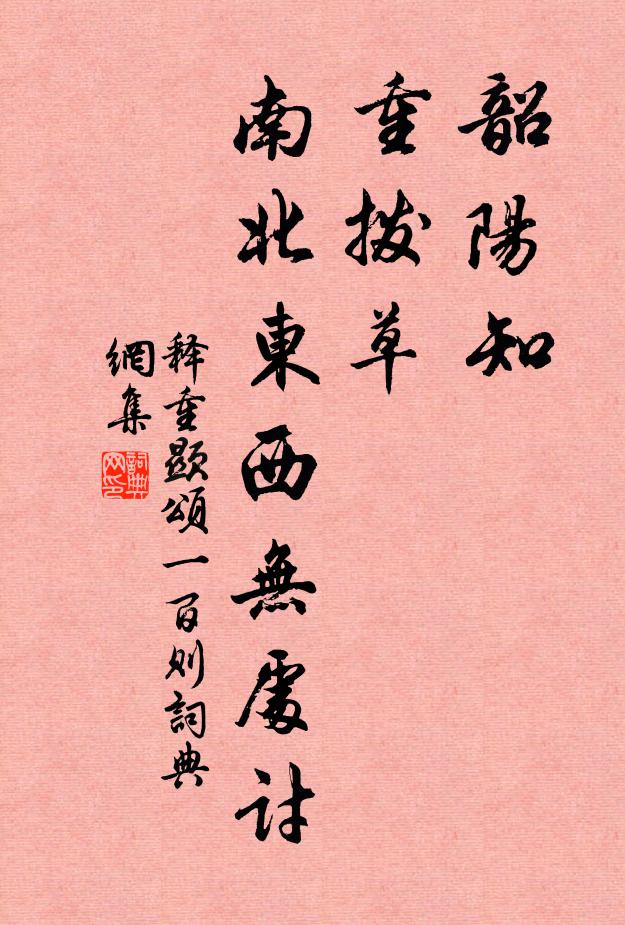 韶陽知
重撥草
南北東西無處討
释重顯頌一百則詞典
網集
詞典
网印